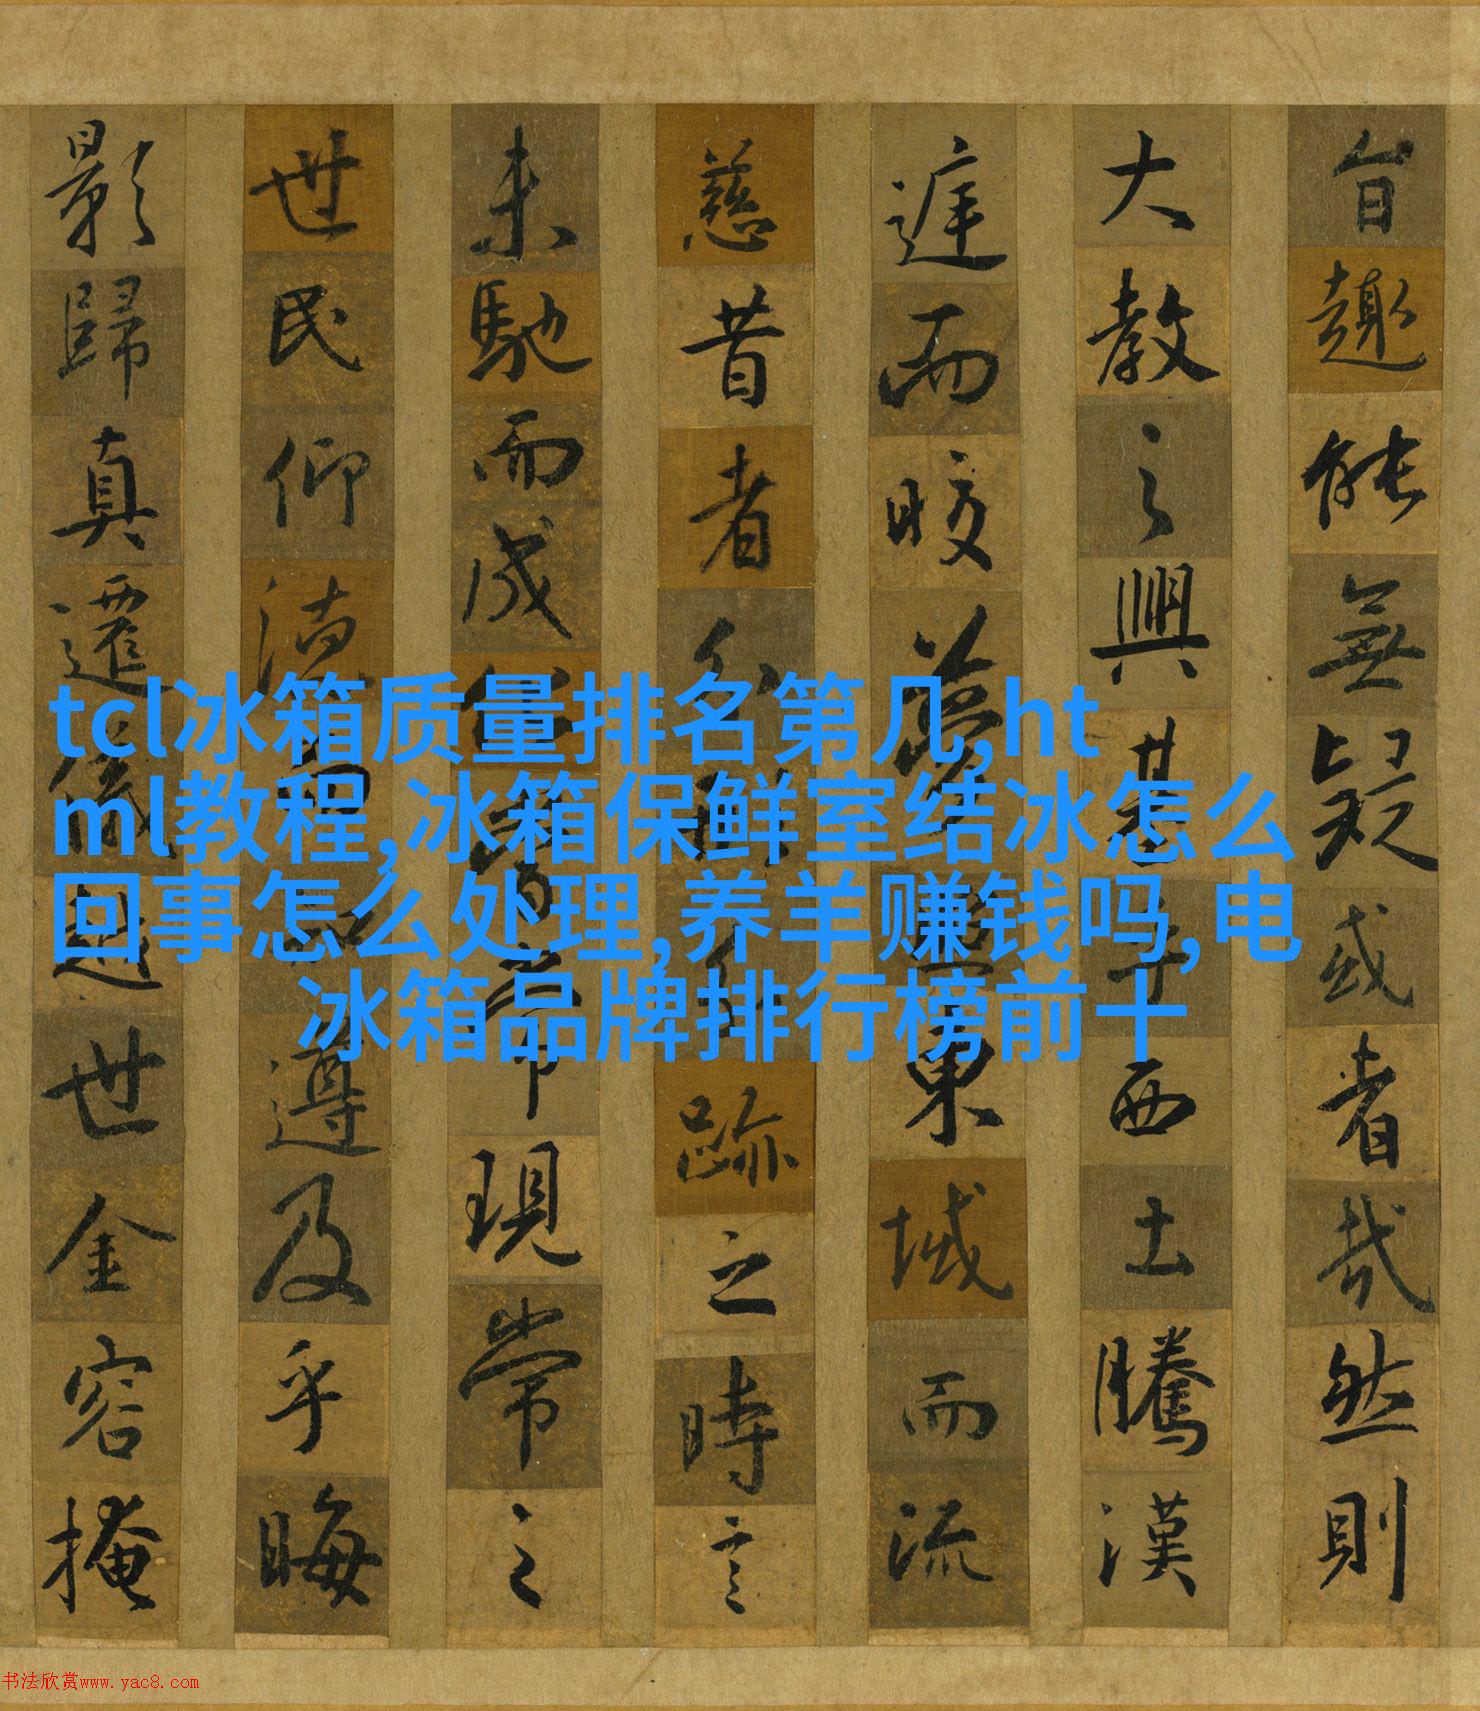 旨趣能無疑或者哉然則
大教之興基乎西土騰漢
庭而皎夢照東域而流
慈昔者分形分跡之時言
未馳而成俗當常現常之
世民仰德而知遵及乎晦
影歸真遷儀越世金容掩
tcl冰箱质量排名第几,ht
ml教程,冰箱保鲜室结冰怎么
回事怎么处理,养羊赚钱吗,电
冰箱品牌排行榜前十
书法欣赏www.yac8.com